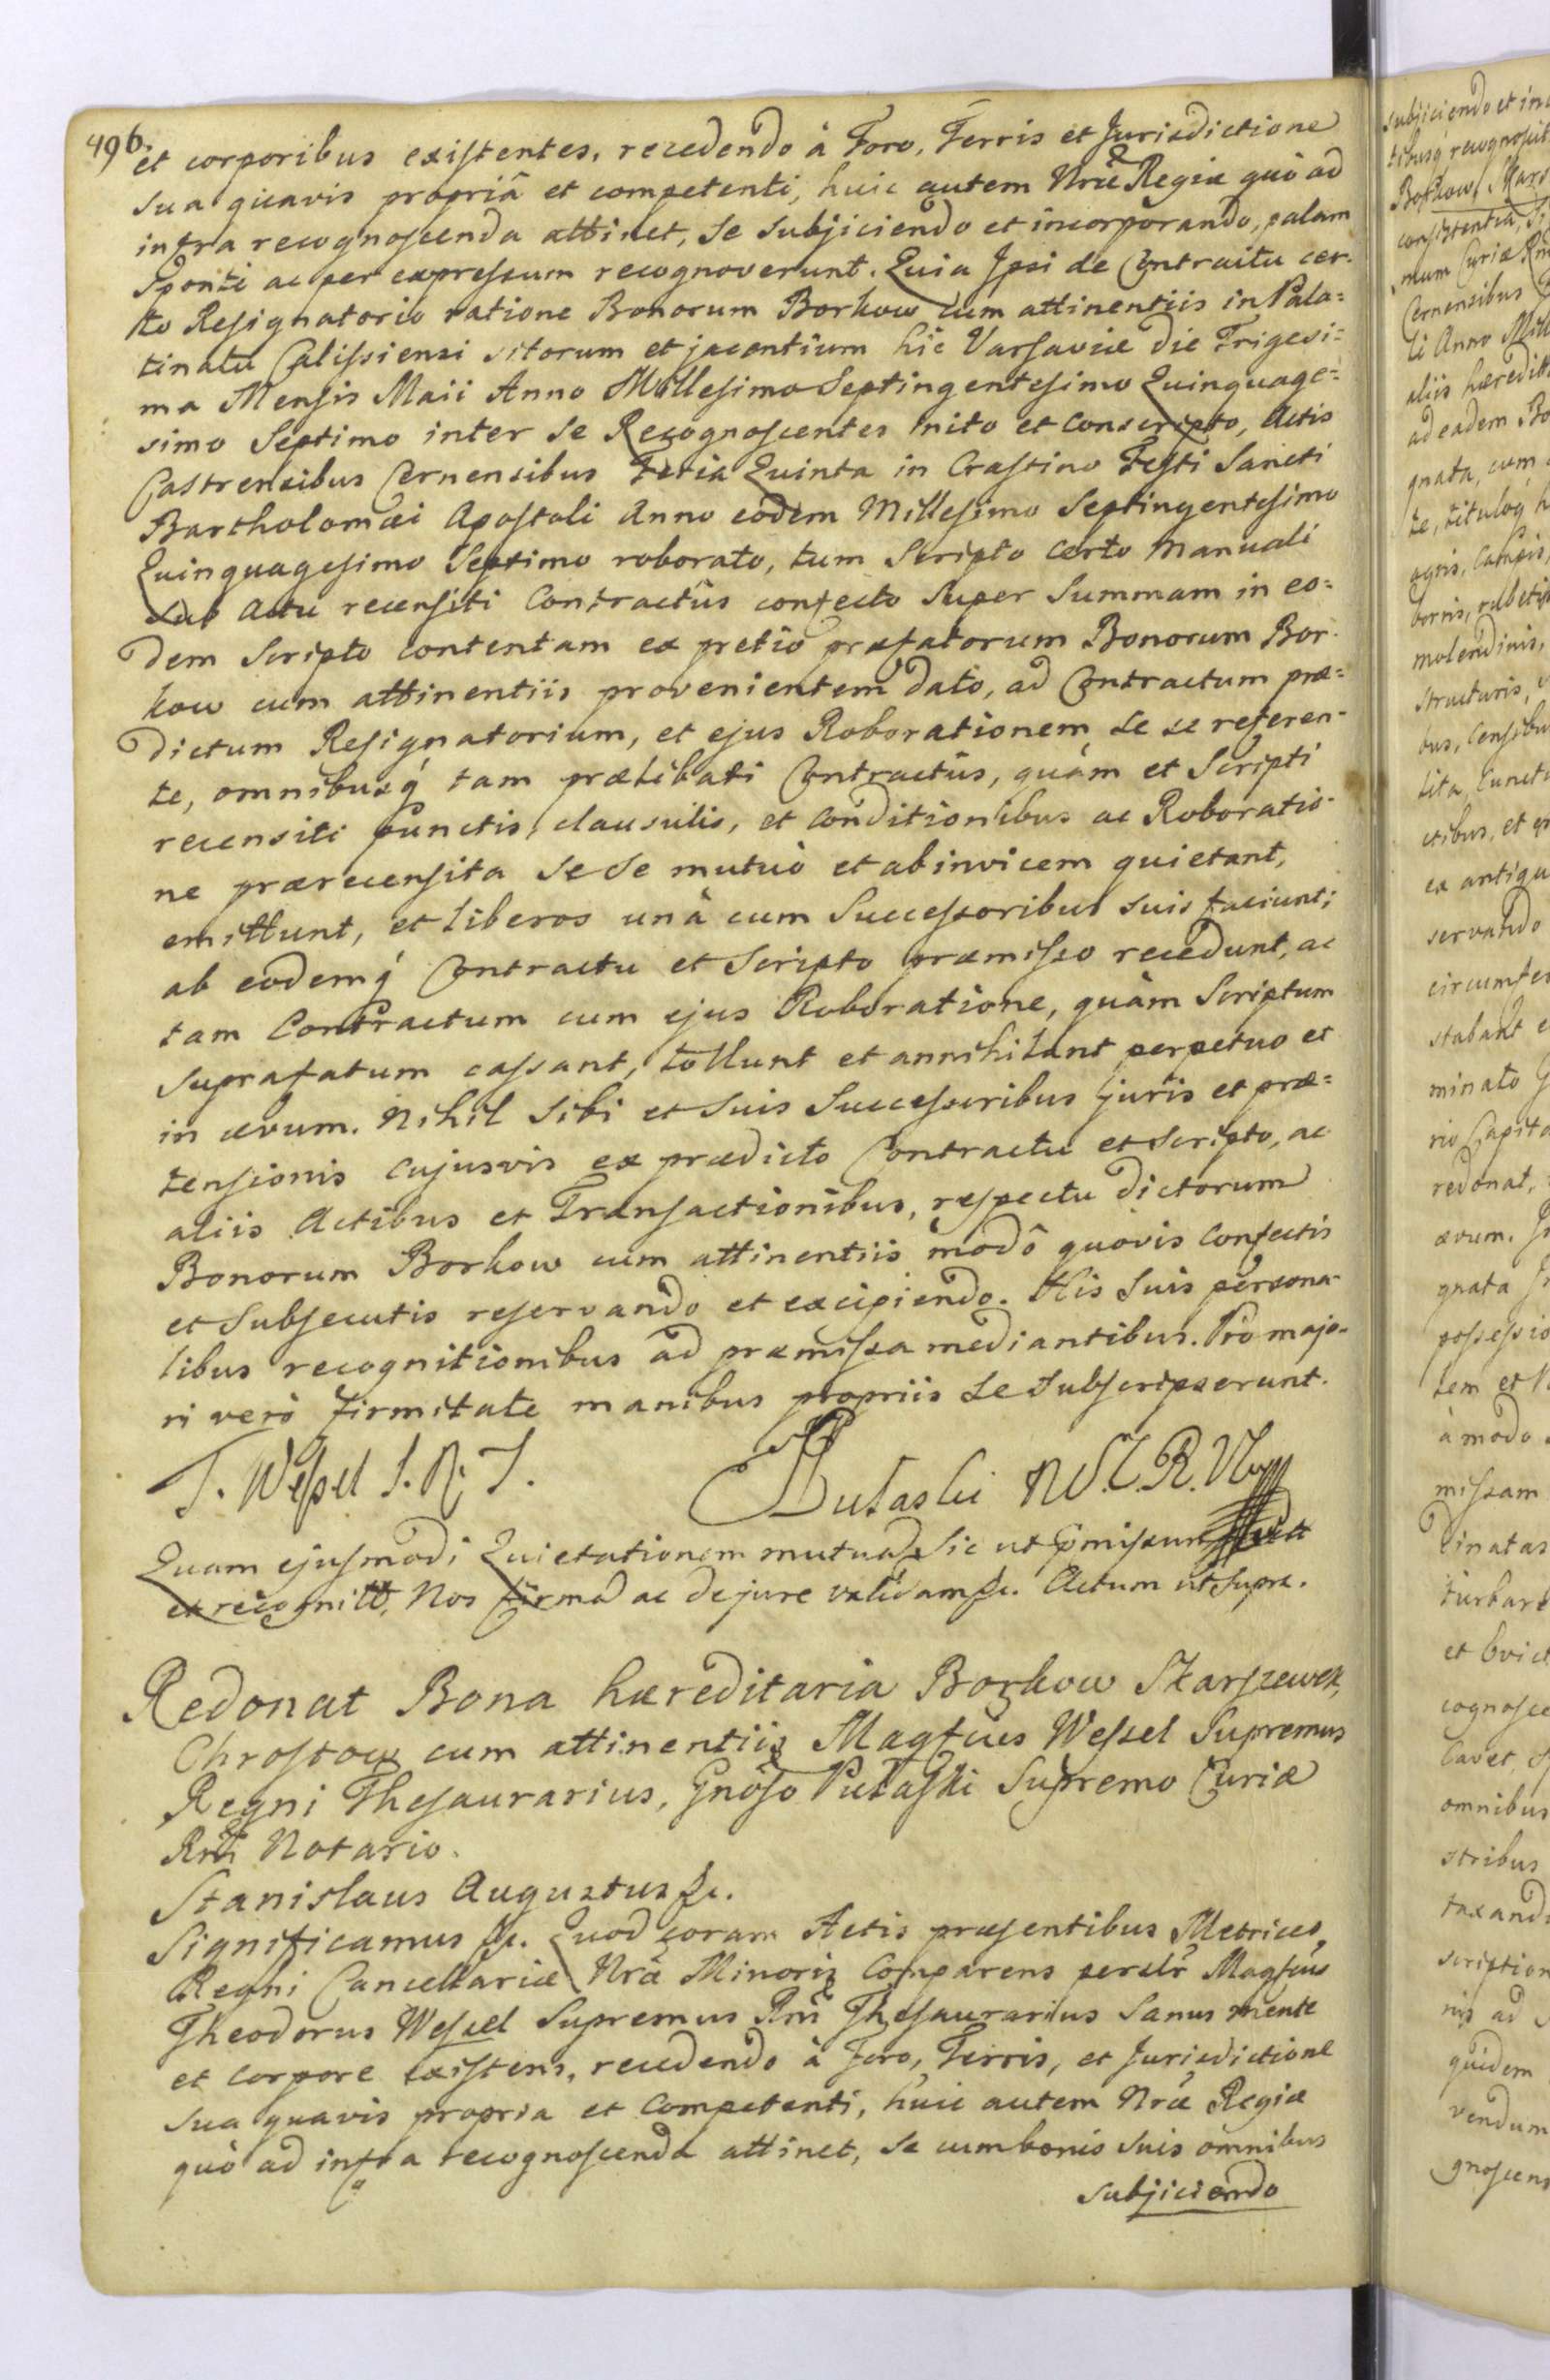 496.
et corporibus existentes, recedendo à Foro, Terris et Jurisdictione
sua quavis propriâ et competenti, huic autem Nrae Regiae quò ad
infra recognoscenda attinet, se subjiciendo et incorporando, palam
sponte ac per expressum recognoverunt. Quia Ipsi de Contractu cer-
to Resignatorio ratione Bonorum Borkow cum attinentiis in Pala=
tinatu Calissiensi sitorum et jacentium hic Varsaviae die Trigesi=
ma Mensis Maii Anno Millesimo Septingentesimo Quinquage=
simo Septimo inter se Recognoscentes inito et conscripto, Actis
Castrensibus Cernensibus Feria Quinta in Crastino Festi Sancti
Bartholomaei Apostoli Anno eodem Millesimo Septingentesimo
Quinquagesimo Septimo roborato, tum Scripto certo Manuali
sub actu recensiti Contractûs confecto super Summam in eo=
dem Scripto contentam ex pretio praefatorum Bonorum Bor-
kow cum attinentiis provenientem dato, ad Contractum prae=
dictum Resignatorium, et ejus Roborationem se se referen-
te, omnibusq́ tam praelibati Contractûs, quàm et Scripti
recensiti punctis, clausulis, et conditionibus ac Roboratio-
ne praerecensita se se mutuò et abinvicem quietant,
emittunt, et liberos unà cum Successoribus suis faciunt;
ab eodemq́ Contractu et Scripto praemisso recedunt, ac
tam Contractum cum ejus Roboratione, quàm Scriptum
suprafatum cassant, tollunt et annihilant perpetuo et
in aevum. Nihil sibi et suis Successoribus juris et prae=
tensionis cujusvis ex praedicto Contractu et Scripto, ac
aliis Actibus et Transactionibus, respectu dictorum
Bonorum Borkow cum attinentiis modô quovis confectis
et subsecutis reservando et excipiendo. His suis persona-
libus recognitionibus ad praemissa mediantibus. Pro majo-
ri verò firmitate manibus propriis se subscripserunt.
T. Wessel
Quam ejusmodi Quietationem mutuã, sic ut
recognitt, Nos firmã ac de jure validam &c. Actum ut supra.
Redonat Bona haereditaria Borkow Skarszewek,
Chrostow cum attinentiis Magfcus Wessel Supremus
Regni Thesaurarius, Gnoso Pułaski Supremo Curiae
Rni Notario.
Stanislaus Augustus &c.
Significamus &c. Quod coram Actis praesentibus Metrices
Regni Cancellariae Nrae Minoris Comparens persltr Magfcus
Theodorus Wessel Supremus Rni Thesaurarius sanus mente
et corpore existens, recedendo à Foro, Terris, et Jurisdictione
sua quavis propria et competenti, huic autem Nrae Regiae
quò ad infra recognoscenda attinet, se cum bonis suis omnibus
subjiciendo
subjiciendo et in
Borkow, Skars
ad eadem
agris, campis,
molendinis,
structuris,
ex antiquo
servando
redonat,
aevum.
gnata
possessio
à modo
missam
dinatas
turbare
omnibus
stribus
scription
quidem
vendum